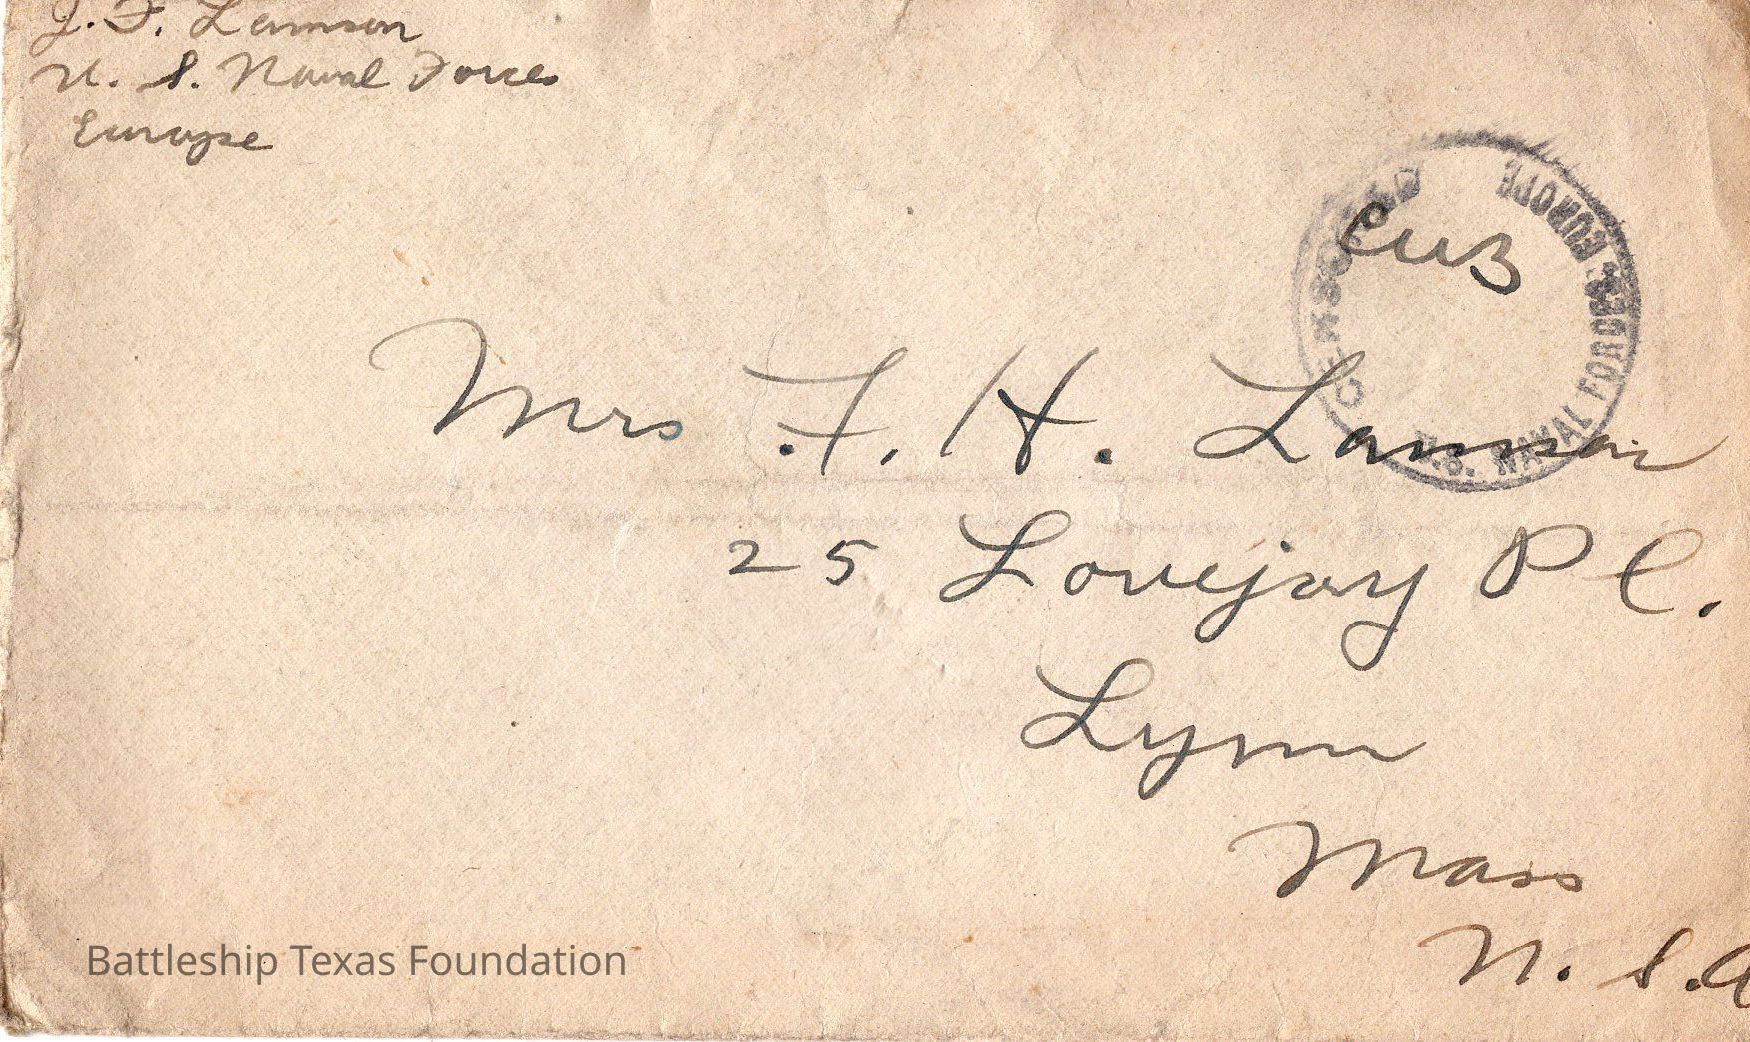 J. F. Lamson
U. S. Naval Forces
Europe
CENSORED
U.S. NAVAL FORCES EUROPE
Mrs F. H. Lamson
25 Lovejoy Pl.
Lynn
Mass
U. S. A
Battleship Texas Foundation